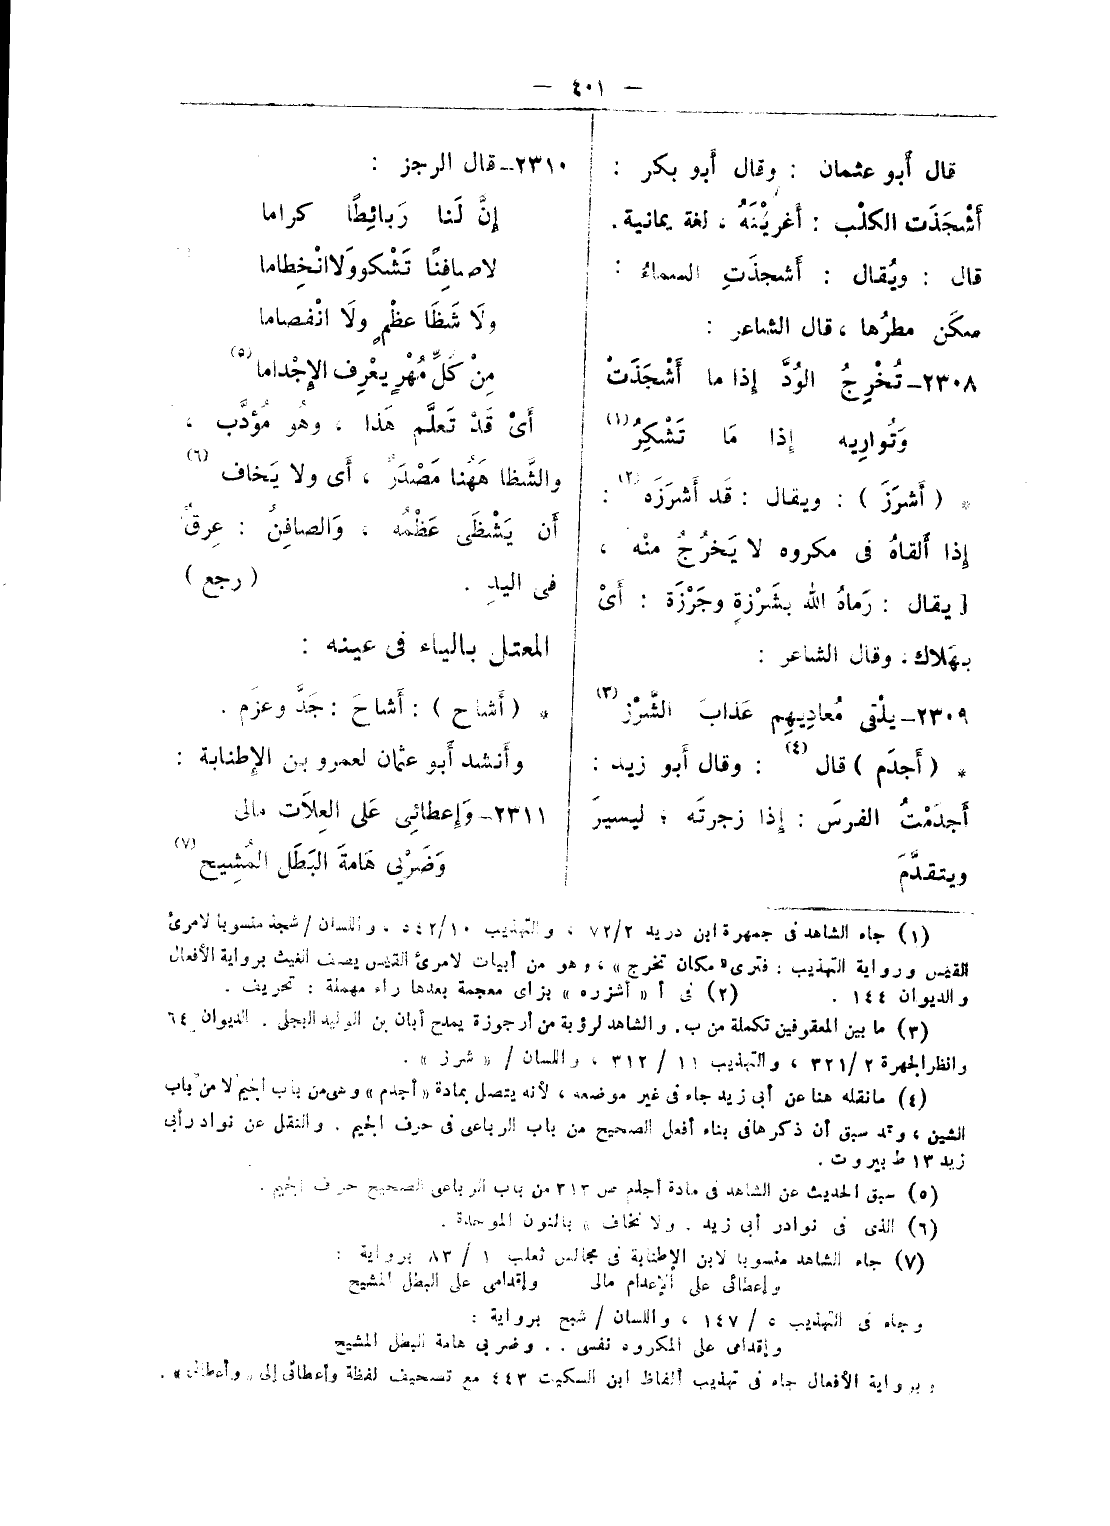 — ٤٠١ —
قال أَبو عثمان : وقال أَبو بكر :
أَشْجَذَت الكلْب : أَغريْتَهُ ، لغة يمانية .
قال : ويُقال : أَشجذَتِ السماءُ :
سكَن مطرُها ، قال الشاعر :
٢٣٠٨ــ تُخْرِجُ الوُدَّ إِذا ما أَشْجَذَتْ
وَتُوارِيه إِذا مَا تَشْكِرُ (١)
* ( أَشرَزَ ) : ويقال : قَد أَشرَزَه (٢) :
إِذا أَلقاهُ فى مكروه لا يَخرُجُ منْه ،
[ يقال : رَماهُ الله بشَرْزةٍ وجَرْزَة : أَىْ
بهَلاك ، وقال الشاعر :
٢٣٠٩ــ يلْقى مُعادِيهِم عَذابَ الشَّرْزِ (٣)
* ( أَجدَم ) قال (٤) : وقال أَبو زيد :
أَجدَمْتُ الفرسَ : إِذا زجرتَه ؛ ليسيرَ
ويتقدَّمَ
٢٣١٠ــ قال الرجز :
إِنَّ لَنا رَبائِطًا كراما
لاصافِنًا تَشْكو وَلاانْخِطاما
ولَا شَظَا عظْمٍ ولَا انْفصاما
مِنْ كَلِّ مُهْرٍ يعْرِف الإِجْداما (٥)
أَىْ قَدْ تَعلَّم هَذا ، وهُو مُؤدَّب ،
والشَّظا هَهُنا مَصْدَرٌ ، أَى ولا يَخاف (٦)
أَن يَشْظَى عَظْمُه ، وَالصافِنُ : عِرقٌ
فى اليدِ . ( رجع )
المعتل بالياء فى عينه :
* ( أَشاح ) : أَشاحَ : جَدَّ وعزَم .
وأَنشد أَبو عثمان لعمرو بن الإِطنابة :
٢٣١١ــ وَإِعطائِى عَلى العِلاَّت مالى
وَضَرْبِى هَامةَ البَطَل المُشِيح (٧)
(١) جاء الشاهد فى جمهرة ابن دريد ٧٢/٢ ، والتهذيب ٥٤٢/١٠ ، واللسان / شجذ منسوبا لامرئ
القيس ورواية التهذيب : فترى « مكان تخرج » ، وهو من أبيات لامرئ القيس يصف الغيث برواية الأفعال
والديوان ١٤٤ . (٢) فى أ « أشزره » بزاى معجمة بعدها راء مهملة : تحريف .
(٣) ما بين المعقوفين تكملة من ب . والشاهد لرؤبة من أرجوزة يمدح أبان بن الوليد البجلى . الديوان ٦٤
وانظر الجهرة ٣٢١/٢ ، والتهذيب ١١ / ٣١٢ ، واللسان / « شرز » .
(٤) مانقله هنا عن أبى زيد جاء فى غير موضعه ، لأنه يتصل بمادة « أجدم » وهى من باب الجيم لا من باب
الشين ، وقد سبق أن ذكرها فى بناء أفعل الصحيح من باب الرباعى فى حرف الجيم . والنقل عن نوادر أبى
زيد ١٣ ط بيروت .
(٥) سبق الحديث عن الشاهد فى مادة أجلم ص ٣١٣ من باب الرباعى الصحيح حرف الجيم .
(٦) الذى فى نوادر أبى زيد . ولا نخاف » بالنون الموحدة .
(٧) جاء الشاهد منسوبا لابن الإطنابة فى مجالس ثعلب ١ / ٨٣ برواية :
وإعطائى على الإعدام مالى وإقدامى على البطل المشيح
وجاء فى التهذيب ٥ / ١٤٧ ، واللسان / شيح برواية :
وإقدامى على المكروه نفسى . . وضربى هامة البطل المشيح
وبرواية الأفعال جاء فى تهذيب ألفاظ ابن السكيت ٤٤٣ مع تصحيف لفظة وأعطائى إلى « وأعطانى » .